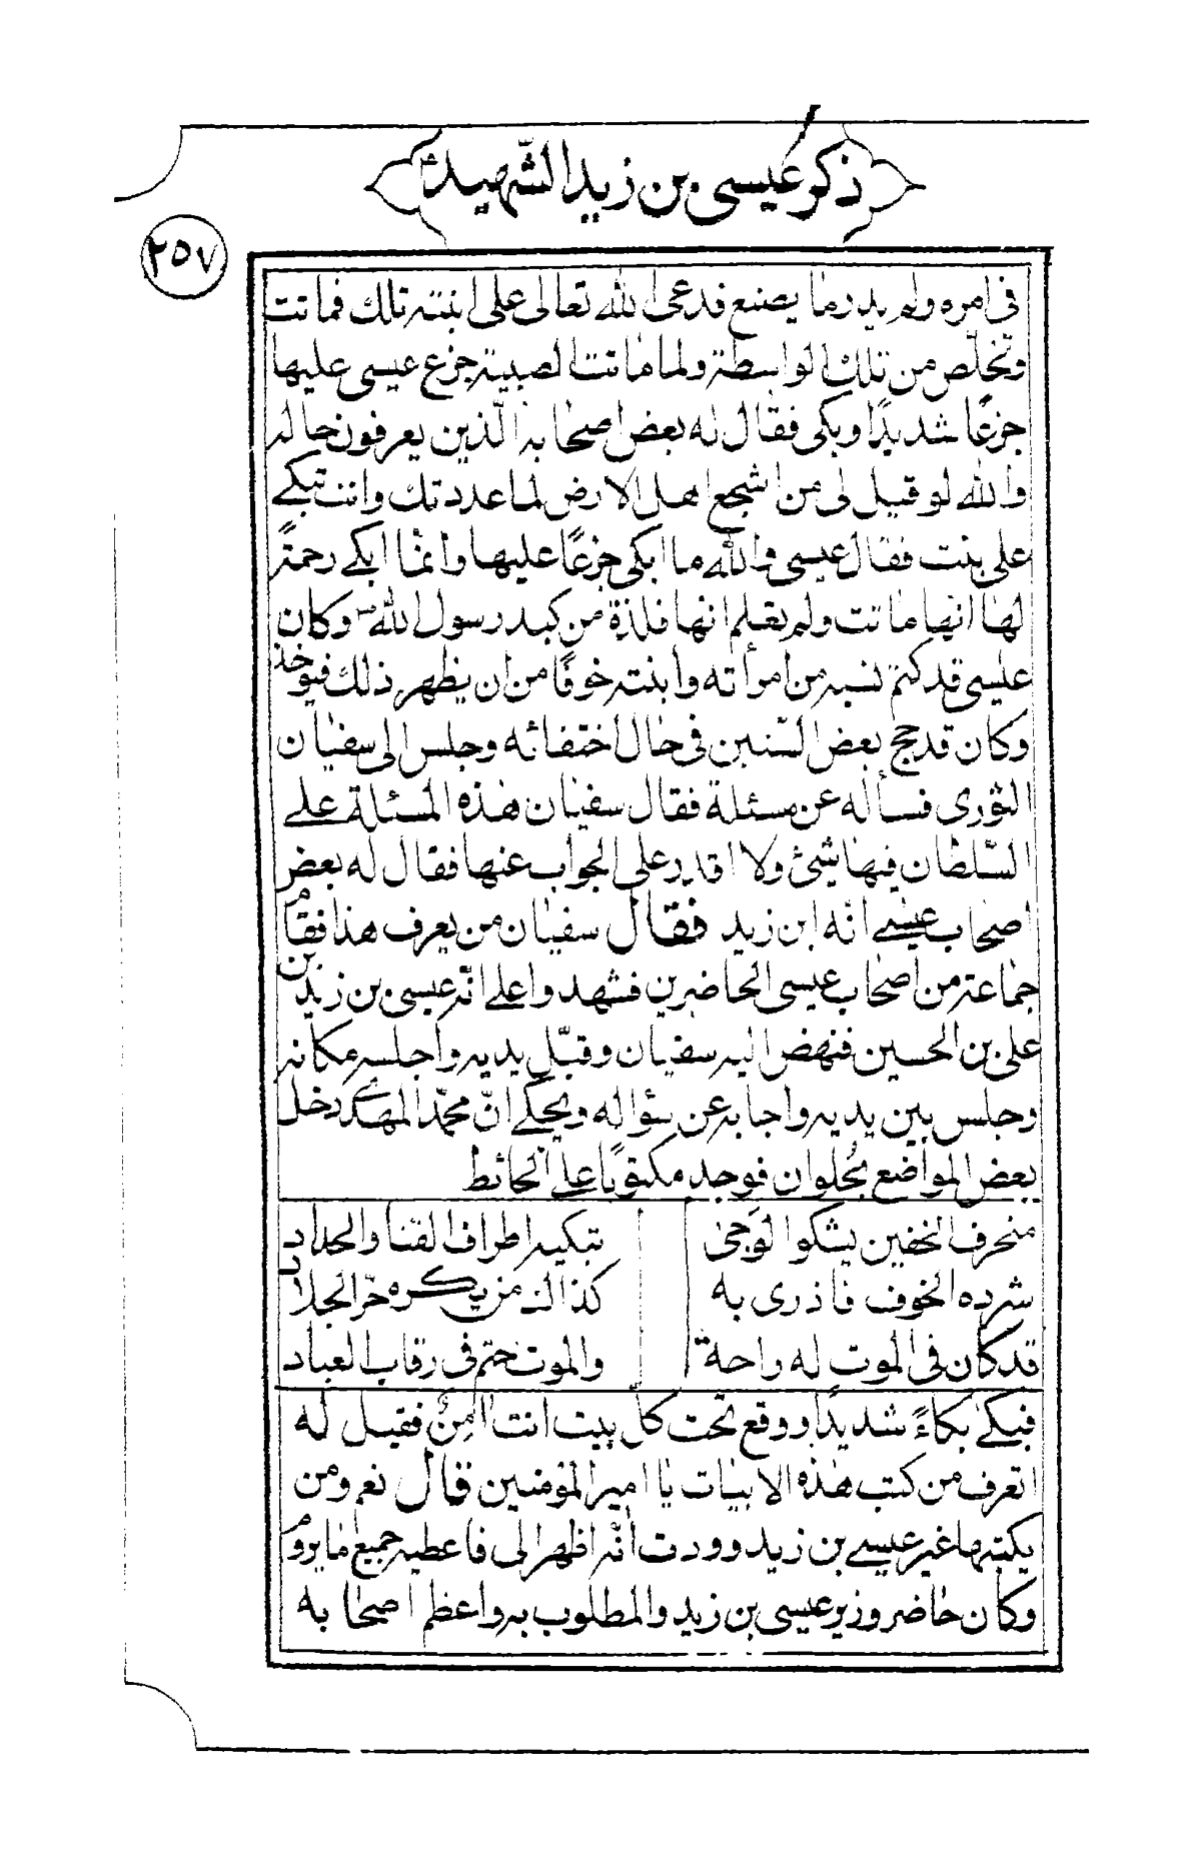 ذكر عيسى بن زيد الشّهيد
٢٥٧
فى امره ولم يدر ما يصنع فدعى الله تعالى على ابنته تلك فماتت
وتخلّص من تلك الواسطة ولما ماتت الصبية جزع عيسى عليها
جزعًا شديدًا وبكى فقال له بعض اصحابه الّذين يعرفون حاله
والله لو قيل لى من اشجع اهل الارض لما عددتك وانت تبكى
على بنت فقال عيسى والله ما ابكى جزعًا عليها وانّما ابكى رحمةً
لها انها ماتت ولم تعلم انها فلذة من كبد رسول الله ص وكان
عيسى قد كتم نسبه من امرأته وابنته خوفًا من ان يظهر ذلك فيوخذ
وكان قد حج بعض السّنين فى حال اختفائه وجلس الى سفيان
الثورى فسأله عن مسئلة فقال سفيان هذه المسئلة على
السّلطان فيها شئ ولا اقدر على الجواب عنها فقال له بعض
اصحاب عيسى انّه ابن زيد فقال سفيان من يعرف هذا فقام
جماعة من اصحاب عيسى الحاضرين فشهدوا على انّه عيسى بن زيد بن
على بن الحسين فنهض اليه سفيان وقبّل يديه واجلسه مكانه
وجلس بين يديه واجابه عن سؤاله ويحكى انّ محمّد المهدى دخل
بعض المواضع بحُلوان فوجد مكتوبًا على الحائط
منخرف الخفين يشكوا الوَجى تبكيه اطراف القنا والحداد
شرده الخوف فاذرى به كذاك من يكره حرّ الجلاد
قد كان فى الموت له راحة والموت حتم فى رقاب العباد
فبكى بكاءً شديدًا ووقع تحت كلّ بيت انت امِنٌ فقيل له
اتعرف من كتب هذه الابيات يا امير المؤمنين قال نعم ومن
يكتبها غير عيسى بن زيد ووددت انّه اظهر الى فاعطيه جميع ما يروم
وكان حاضر وزير عيسى بن زيد والمطلوب به واعظم اصحابه